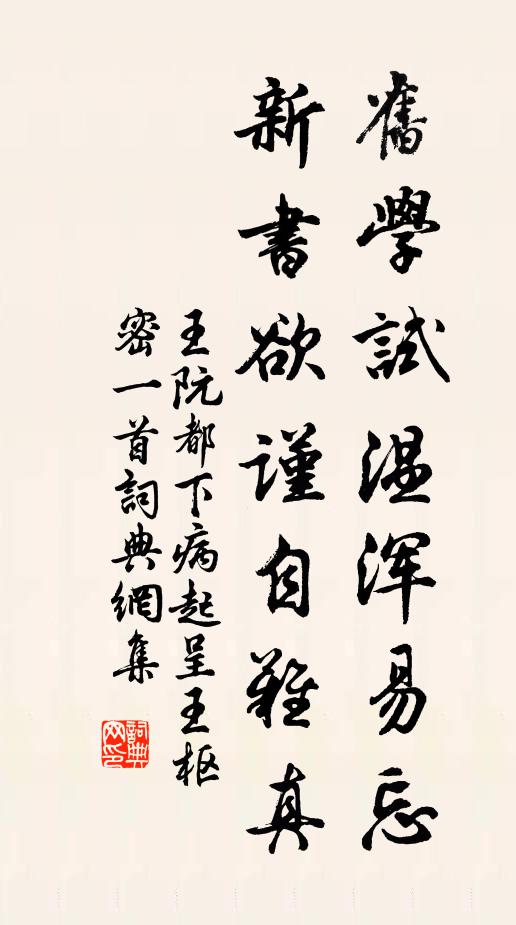 舊學試温浑易忘
新書欲谨自難真
王阮都下病起呈王枢
密一首詞典網集
詞典网印